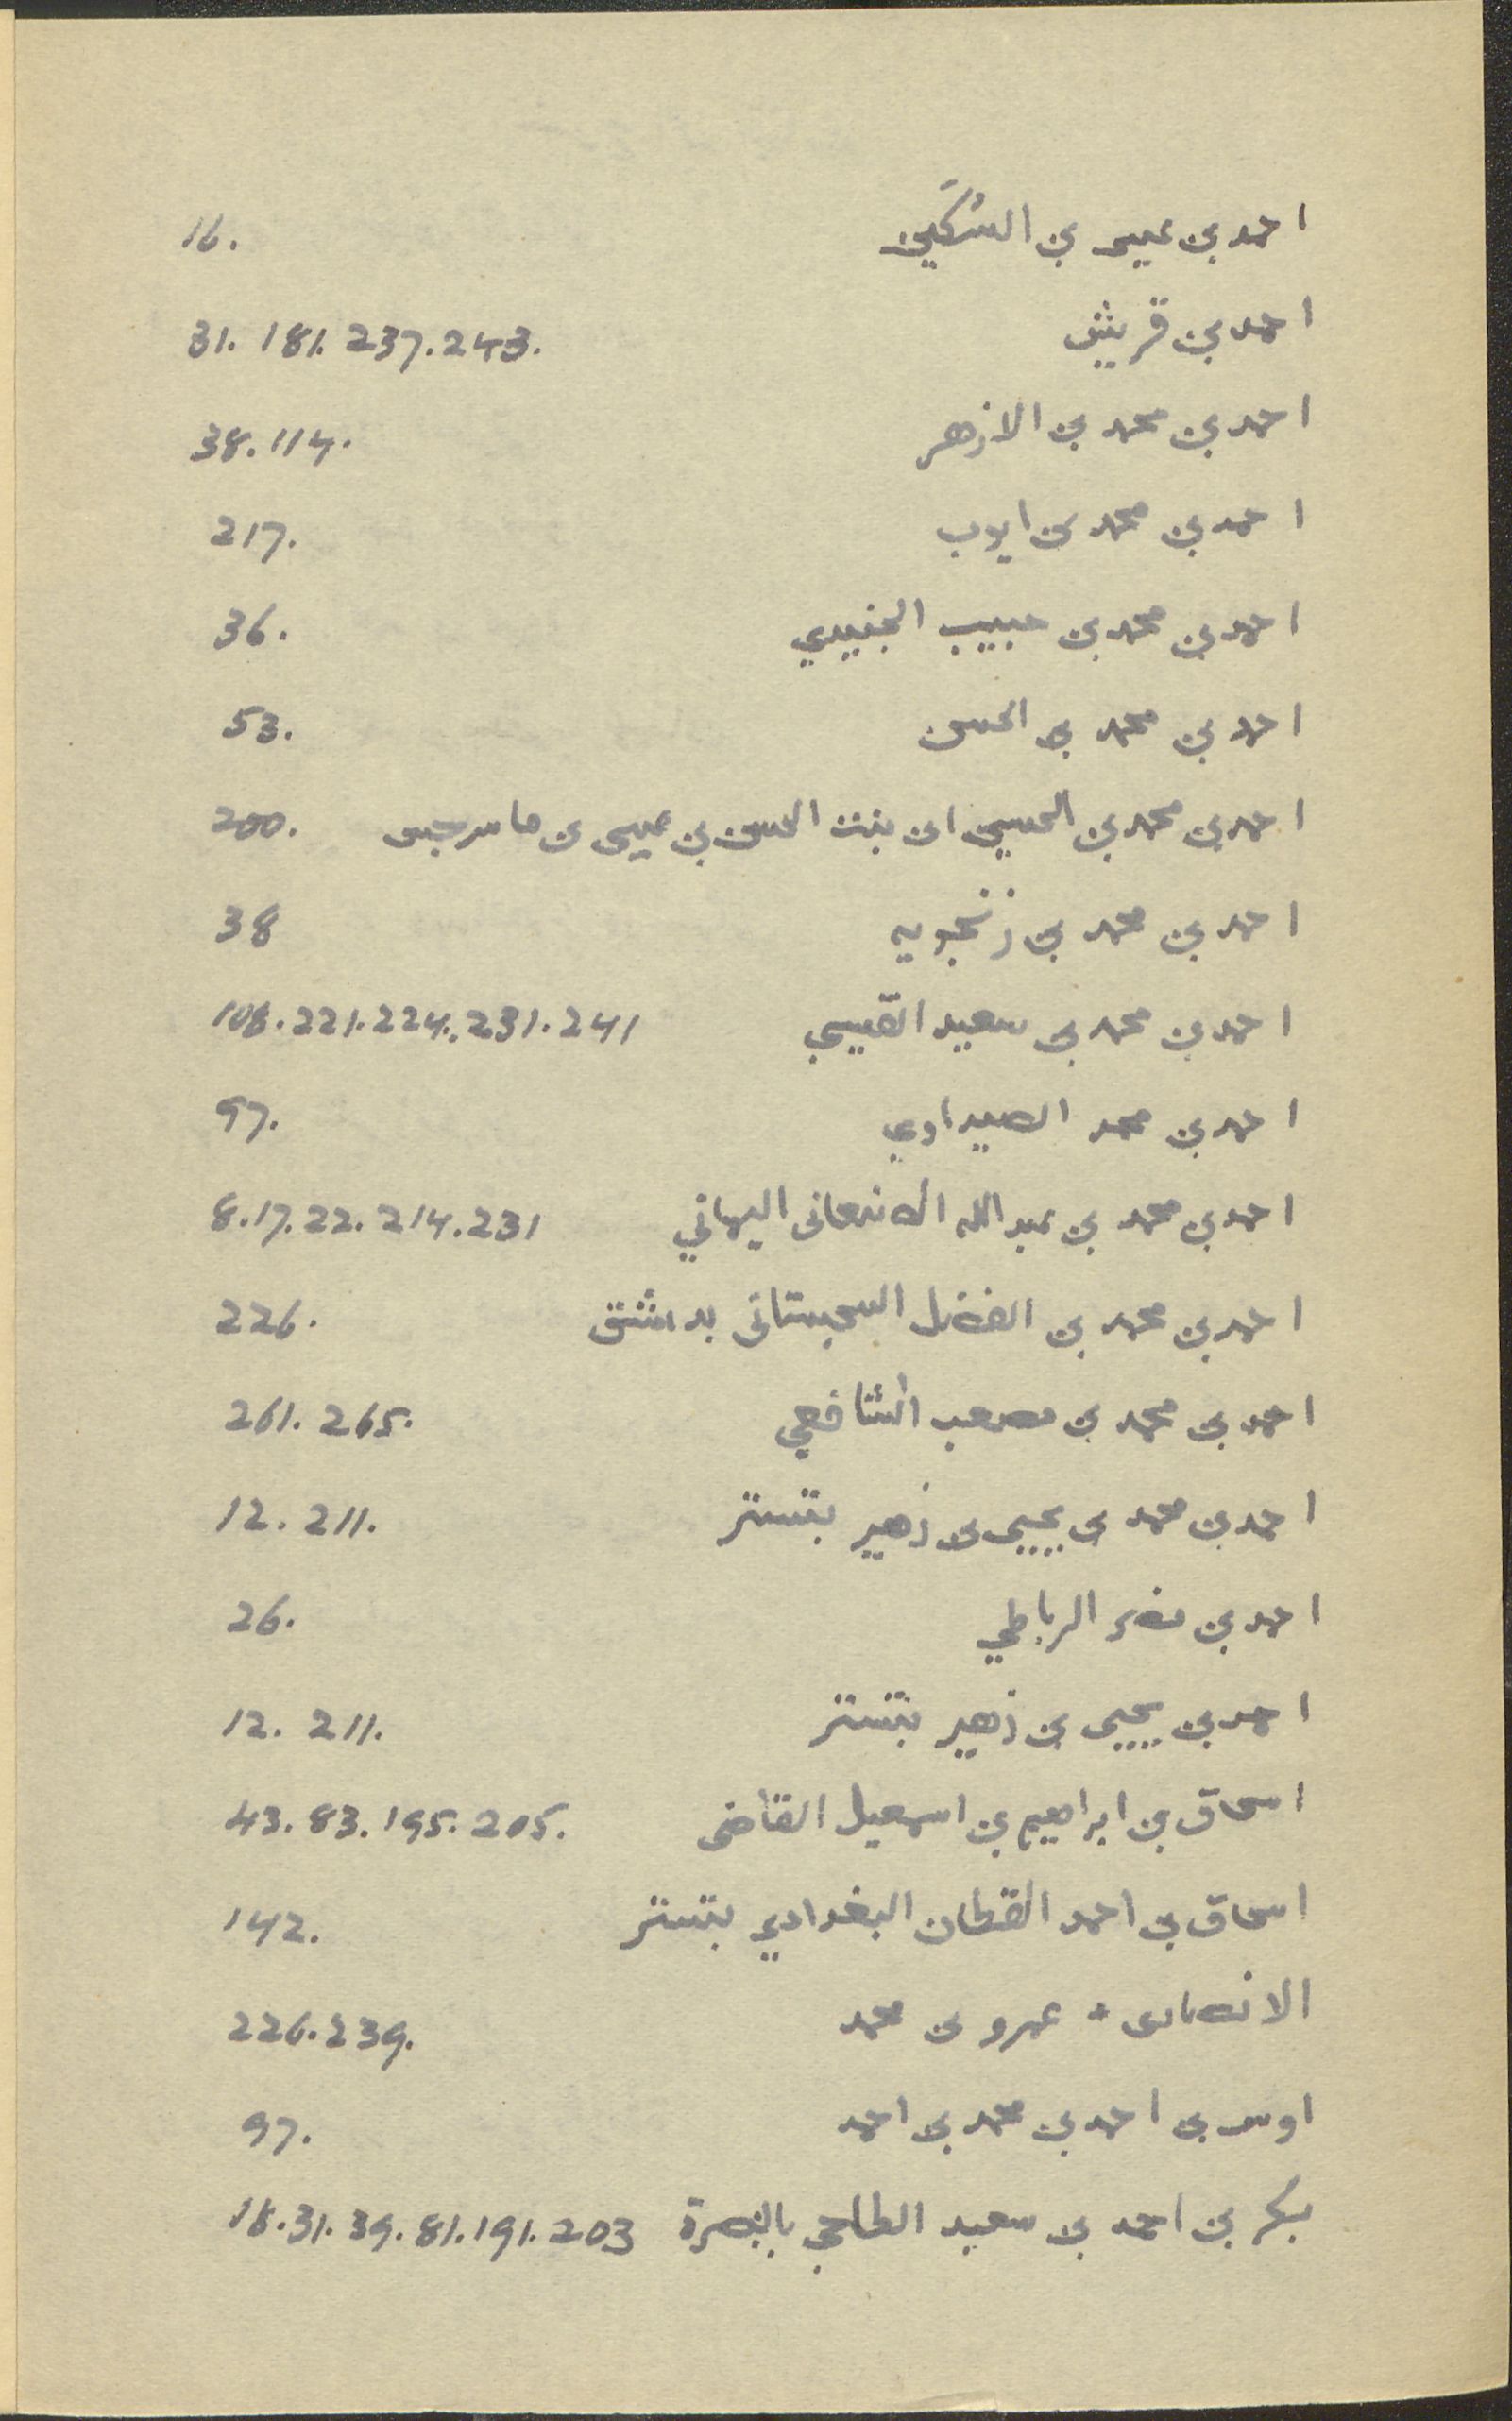 احمد بن عيسى بن السُكَين 16.
احمد بن قريش 31. 181. 237. 243.
احمد بن محمد بن الازهر 38. 114.
احمد بن محمد بن ايوب 217.
احمد بن محمد بن حبيب الجنيدي 36.
احمد بن محمد بن الحسن 53.
احمد بن محمد بن الحسين ابن بنت الحسن بن عيسى بن ماسرجس 200.
احمد بن محمد بن زنجويه 38
احمد بن محمد بن سعيد القيسي 108. 221. 224. 231. 241
احمد بن محمد الصيداوي 97.
احمد بن محمد بن عبد الله الصنعانى اليماني 8. 17. 22. 214. 231
احمد بن محمد بن الفضل السجستانى بدمشق 226.
احمد بن محمد بن مصعب الشافعي 261. 265.
احمد بن محمد بن يحيى بن زهير بتستر 12. 211.
احمد بن نصر الرباطي 26.
احمد بن يحيى بن زهير بتستر 12. 211.
اسحاق بن ابراهيم بن اسمعيل القاضى 43. 83. 195. 205.
اسحاق بن احمد القطان البغدادي بتستر 142.
الانصارى * عمرو بن محمد 226. 239.
اوس بن احمد بن محمد بن احمد 97.
بكر بن احمد بن سعيد الطاحي بالبصرة 18. 31. 39. 81. 191. 203